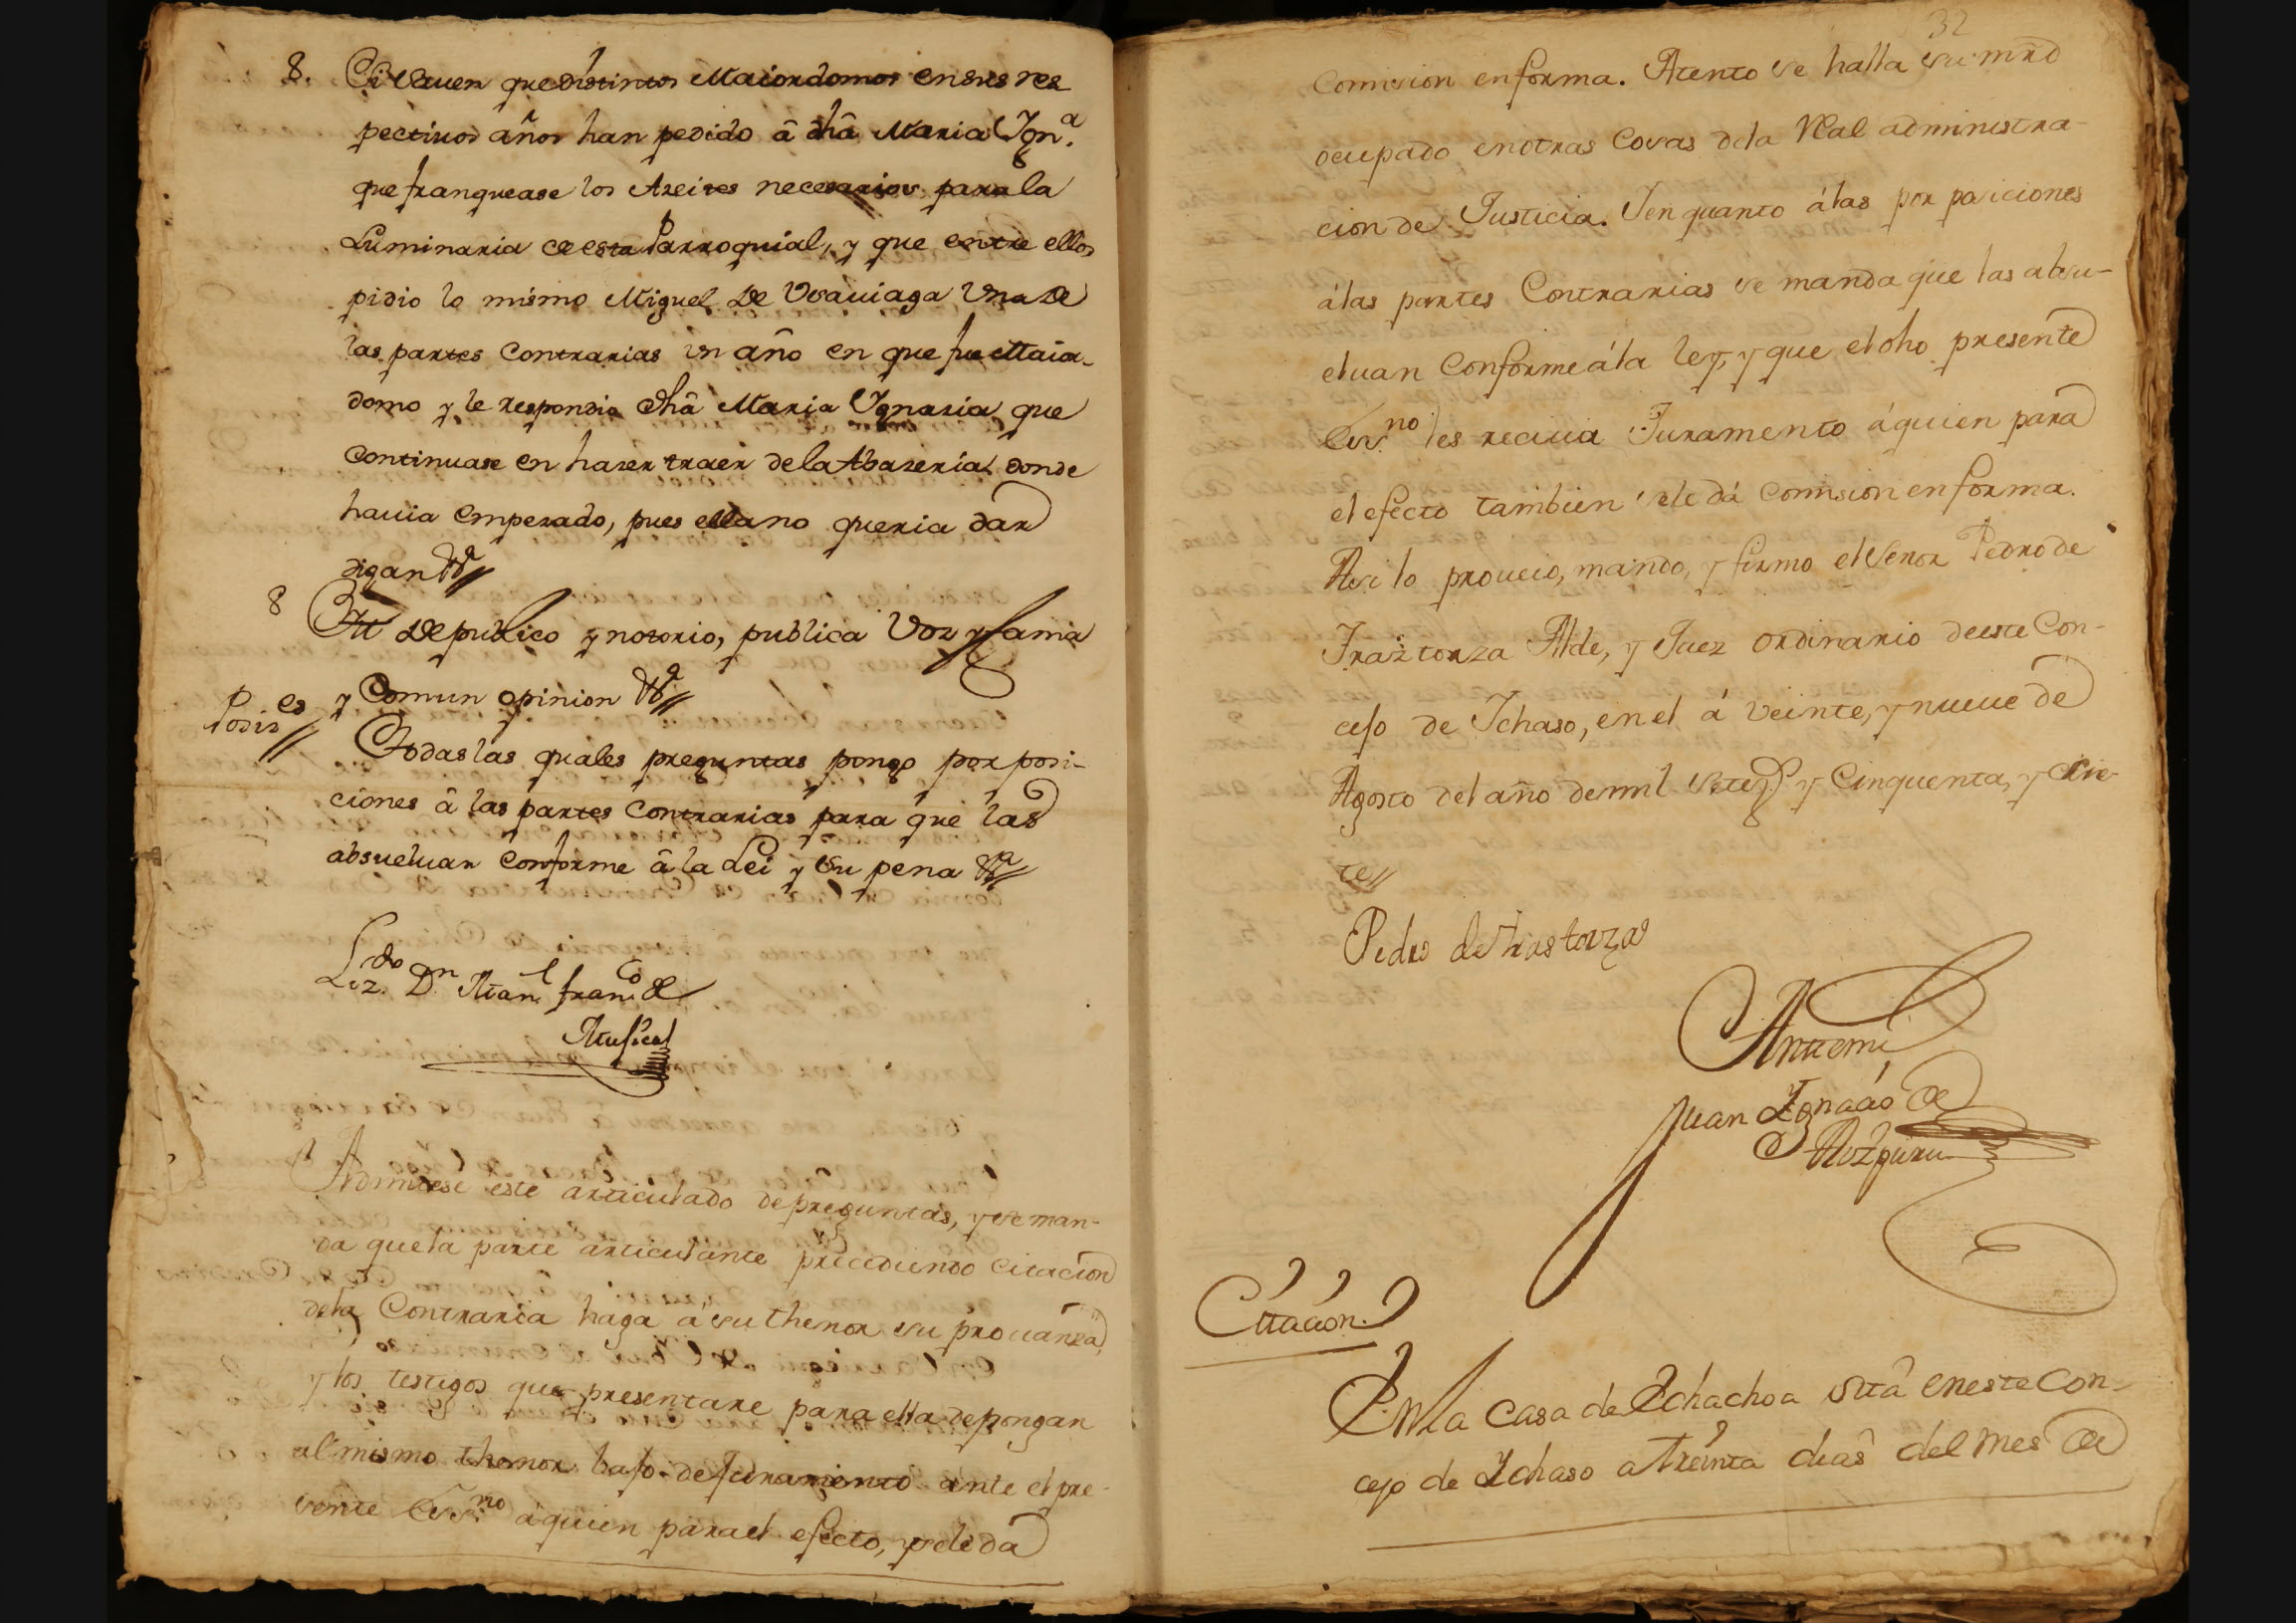 8. Si saven que distintos Maiordomos en sus res
pectivos años han pedido â dhâ Maria Ign.ª
que franquease los Azeites necesarios para la
Luminaria de esta Parroquial, y que entre ellos
pidio lo mismo Miguel de Usauiaga Una de
las partes Contrarias un año en que fue Maior-
domo y le respondio dhâ Maria Ygnazia que
Continuase en hazer traer de la Abazeria donde
hauia empezado, pues ella no queria dar
digan &ª
8 Itt de publico y notorio, publica Voz y fama
y Comun opinion &ª
Posiz.es
Todas las quales preguntas pongo por posi-
ciones â las partes Contrarias para que las
absueluan Conforme â la Lei y su pena &ª
Lizdo. Dn. Man.l Fran.co de
Admitese este articulado de preguntas, y se man-
da que la parte articulante precediendo citacion
dela Contraria haga á su thenor su prouanza,
y los testigos que presentare para ella depongan
al mismo thenor bajo de Juramento ante el pre-
sente Ess.no aquien para el efecto, se le da
32
Comision en forma. Atento se halla su mrd
ocupado en otras Cosas dela Real administra-
cion de Justicia. I en quanto álas por posiciones
álas partes Contrarias se manda que las absu-
eluan Conforme á la ley, y que el dho presente
Ess.no les reciuia Juramento áquien para
el efecto tambien se le dá Comision en forma.
Asi lo proueio, mando, y firmo el Señor Pedro de
Irastorza Alde, y Juez ordinario de este Con-
cejo de Ichaso, en el á veinte, y nueue de
Agosto del año de mil setez.s y Cinquenta, y Sie-
te//
Pedro de Irastorza
Antemi
Juan Ignacio de
Aozpuru
Citacion.
En la Casa de Echachoa sitâ en este Con-
cejo de Ichaso a treinta dias del mes de